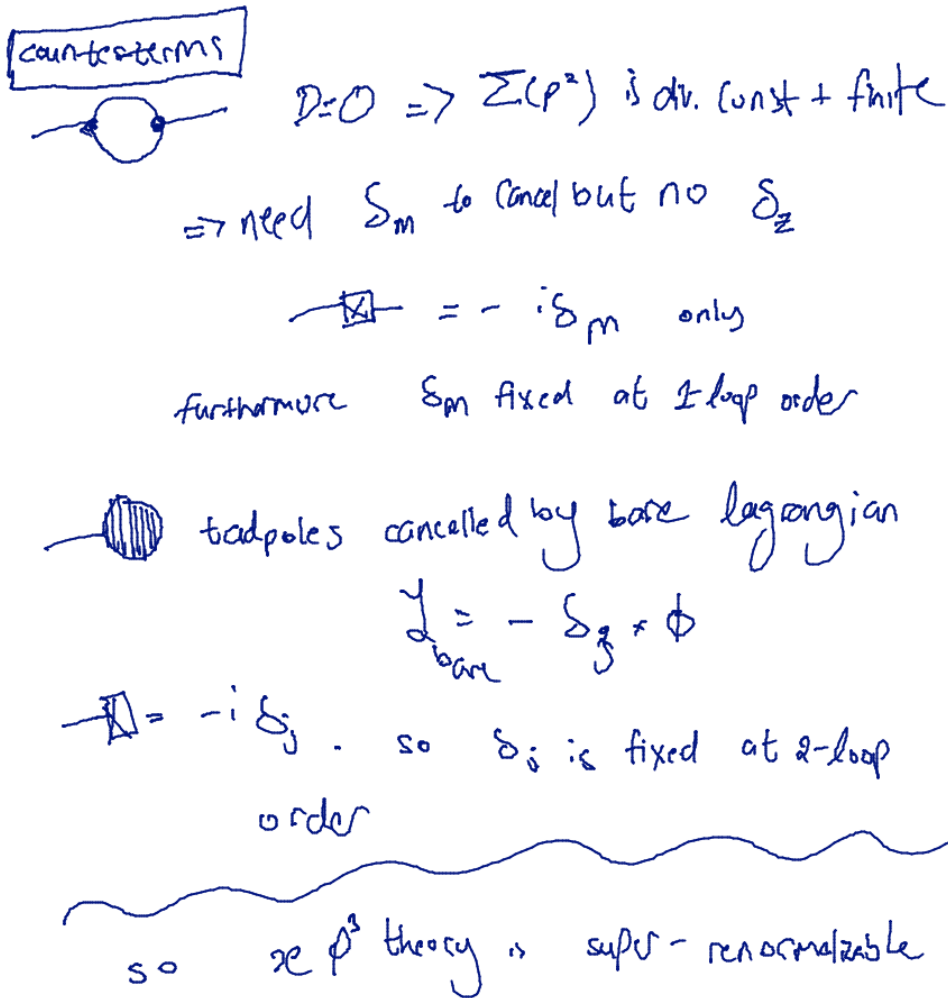 counterterms
D=0 => Σ(p²) is div. const + finite
=> need δ_m to cancel but no δ_z
= - iδ_m only
furthermore δ_m fixed at 1-loop order
tadpoles cancelled by bare lagrangian
L_bare = - δ_j * φ
= -i δ_j . so δ_j is fixed at 2-loop
order
so æ φ³ theory is super-renormalizable